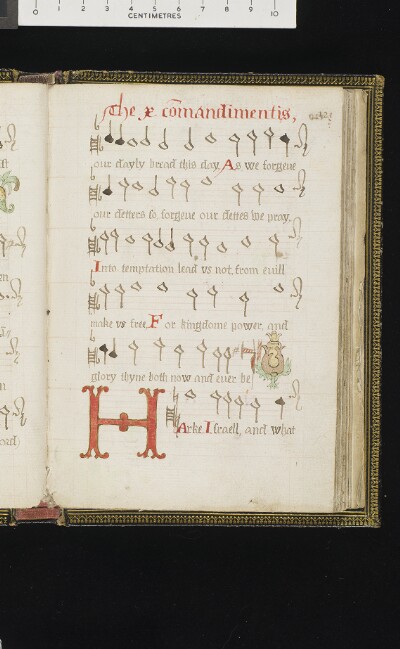 0 1 2 3 4 5 6 7 8 9 10
CENTIMETRES
The x cōmandimentis,
our dayly bread this day. As we forgeue
our detters so forgeue our dettes we pray.
Into temptation lead vs not, from euill
make vs free. For kingdome power, and
glory thyne both now and euer be
HArke Israell, and what